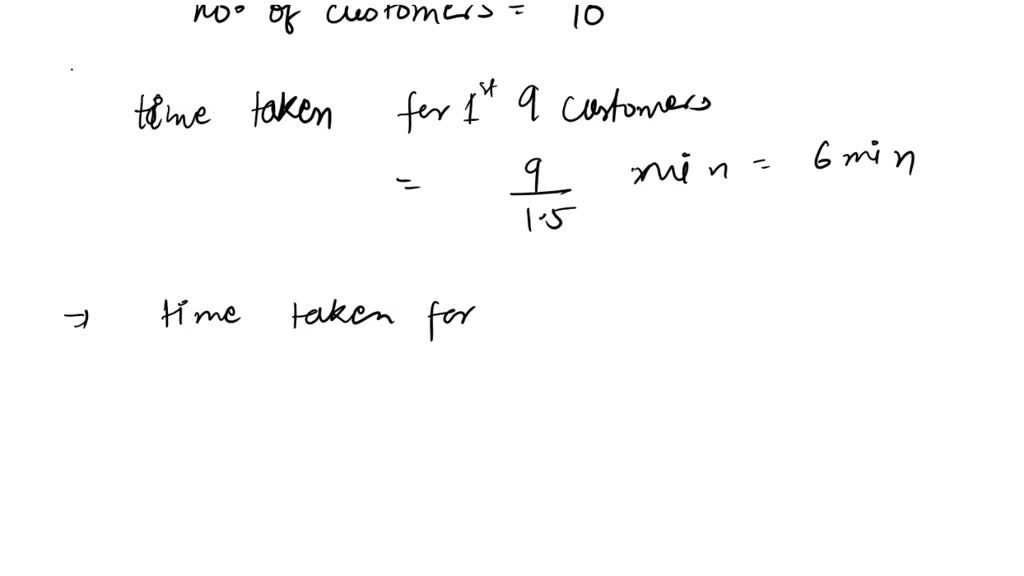 no. of customers = 10
time taken for 1st 9 customers
= 9/1.5 min = 6 min
→ time taken for